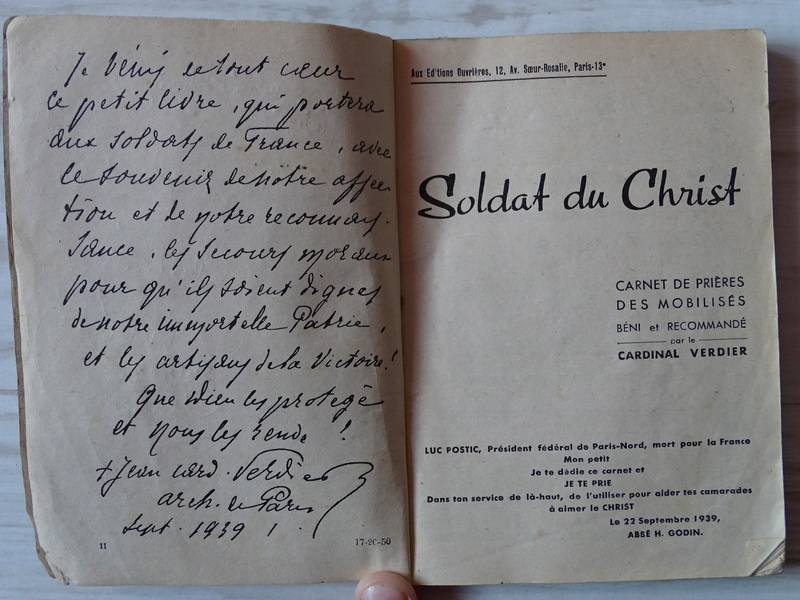 Je bénis de tout cœur
ce petit livre, qui portera
aux soldats de France, avec
le souvenir de notre affec-
tion et de notre reconnais-
sance, les secours moraux
pour qu'ils soient dignes
de notre immortelle Patrie,
et les artisans de la Victoire!
Que Dieu les protège
et nous les rende!
+ Jean card. Verdier
arch. de Paris
sept. 1939
II
17-20-50
Aux Editions Ouvrières, 12, Av. Sœur-Rosalie, Paris-13e
Soldat du Christ
CARNET DE PRIÈRES
DES MOBILISÉS
BÉNI et RECOMMANDÉ
par le
CARDINAL VERDIER
LUC POSTIC, Président fédéral de Paris-Nord, mort pour la France
Mon petit
Je te dédie ce carnet et
JE TE PRIE
Dans ton service de là-haut, de l'utiliser pour aider tes camarades
à aimer le CHRIST
Le 22 Septembre 1939,
ABBÉ H. GODIN.